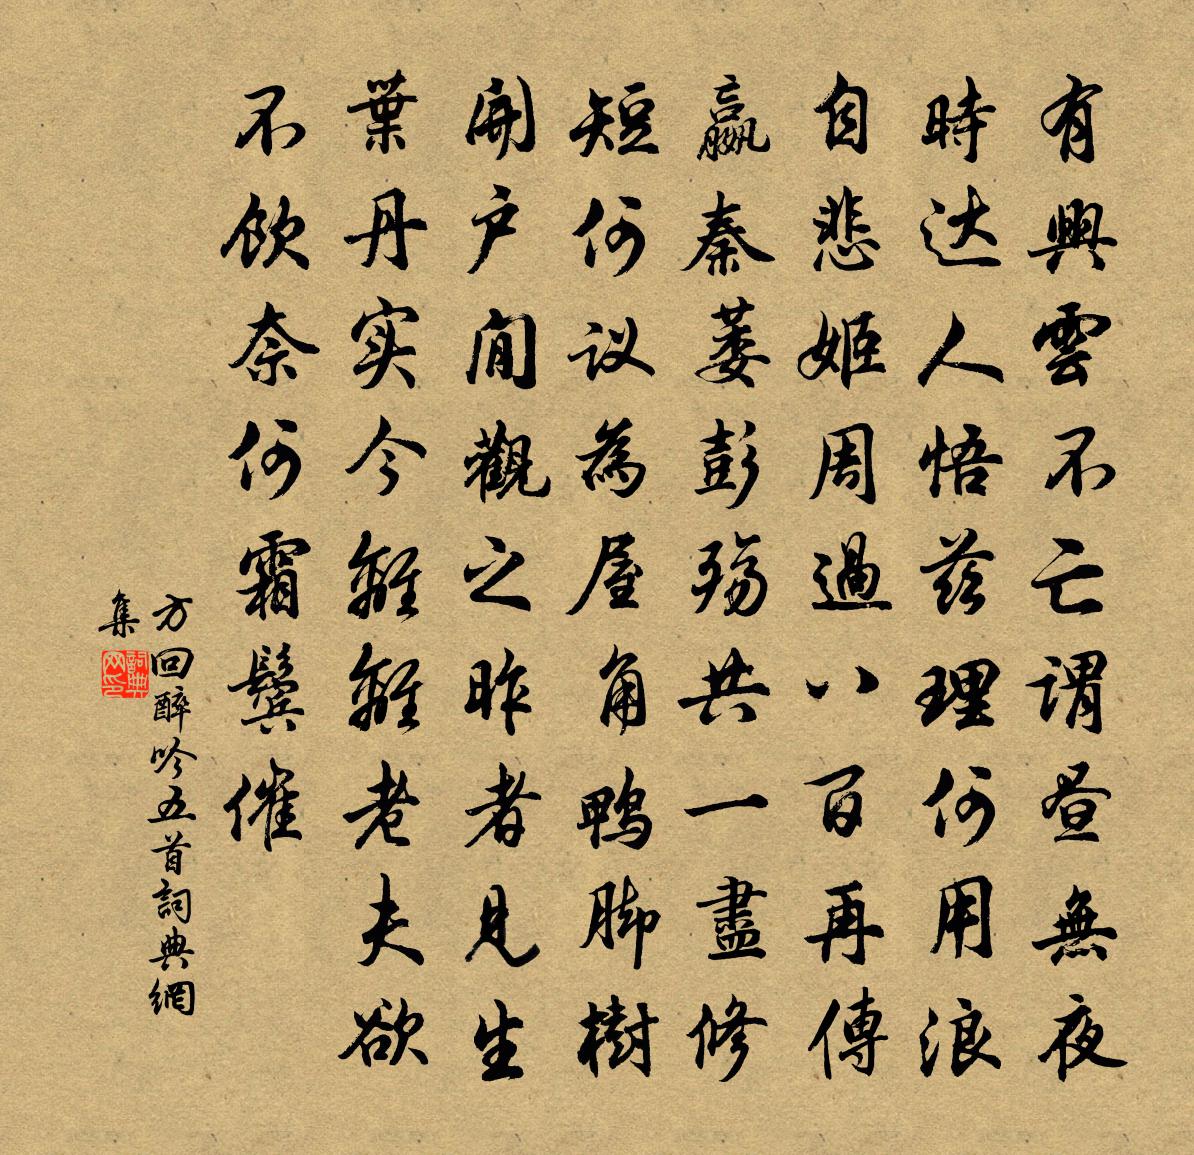 有興雲不亡謂昼無夜
時达人悟兹理何用浪
自悲姬周過八百再傳
嬴秦蒌彭殇共一盡修
短何议為屋角鴨脚樹
開户閒觀之昨者見生
葉丹实今離離老夫欲
不飲奈何霜鬓催
方回醉吟五首詞典網
集
詞典网印